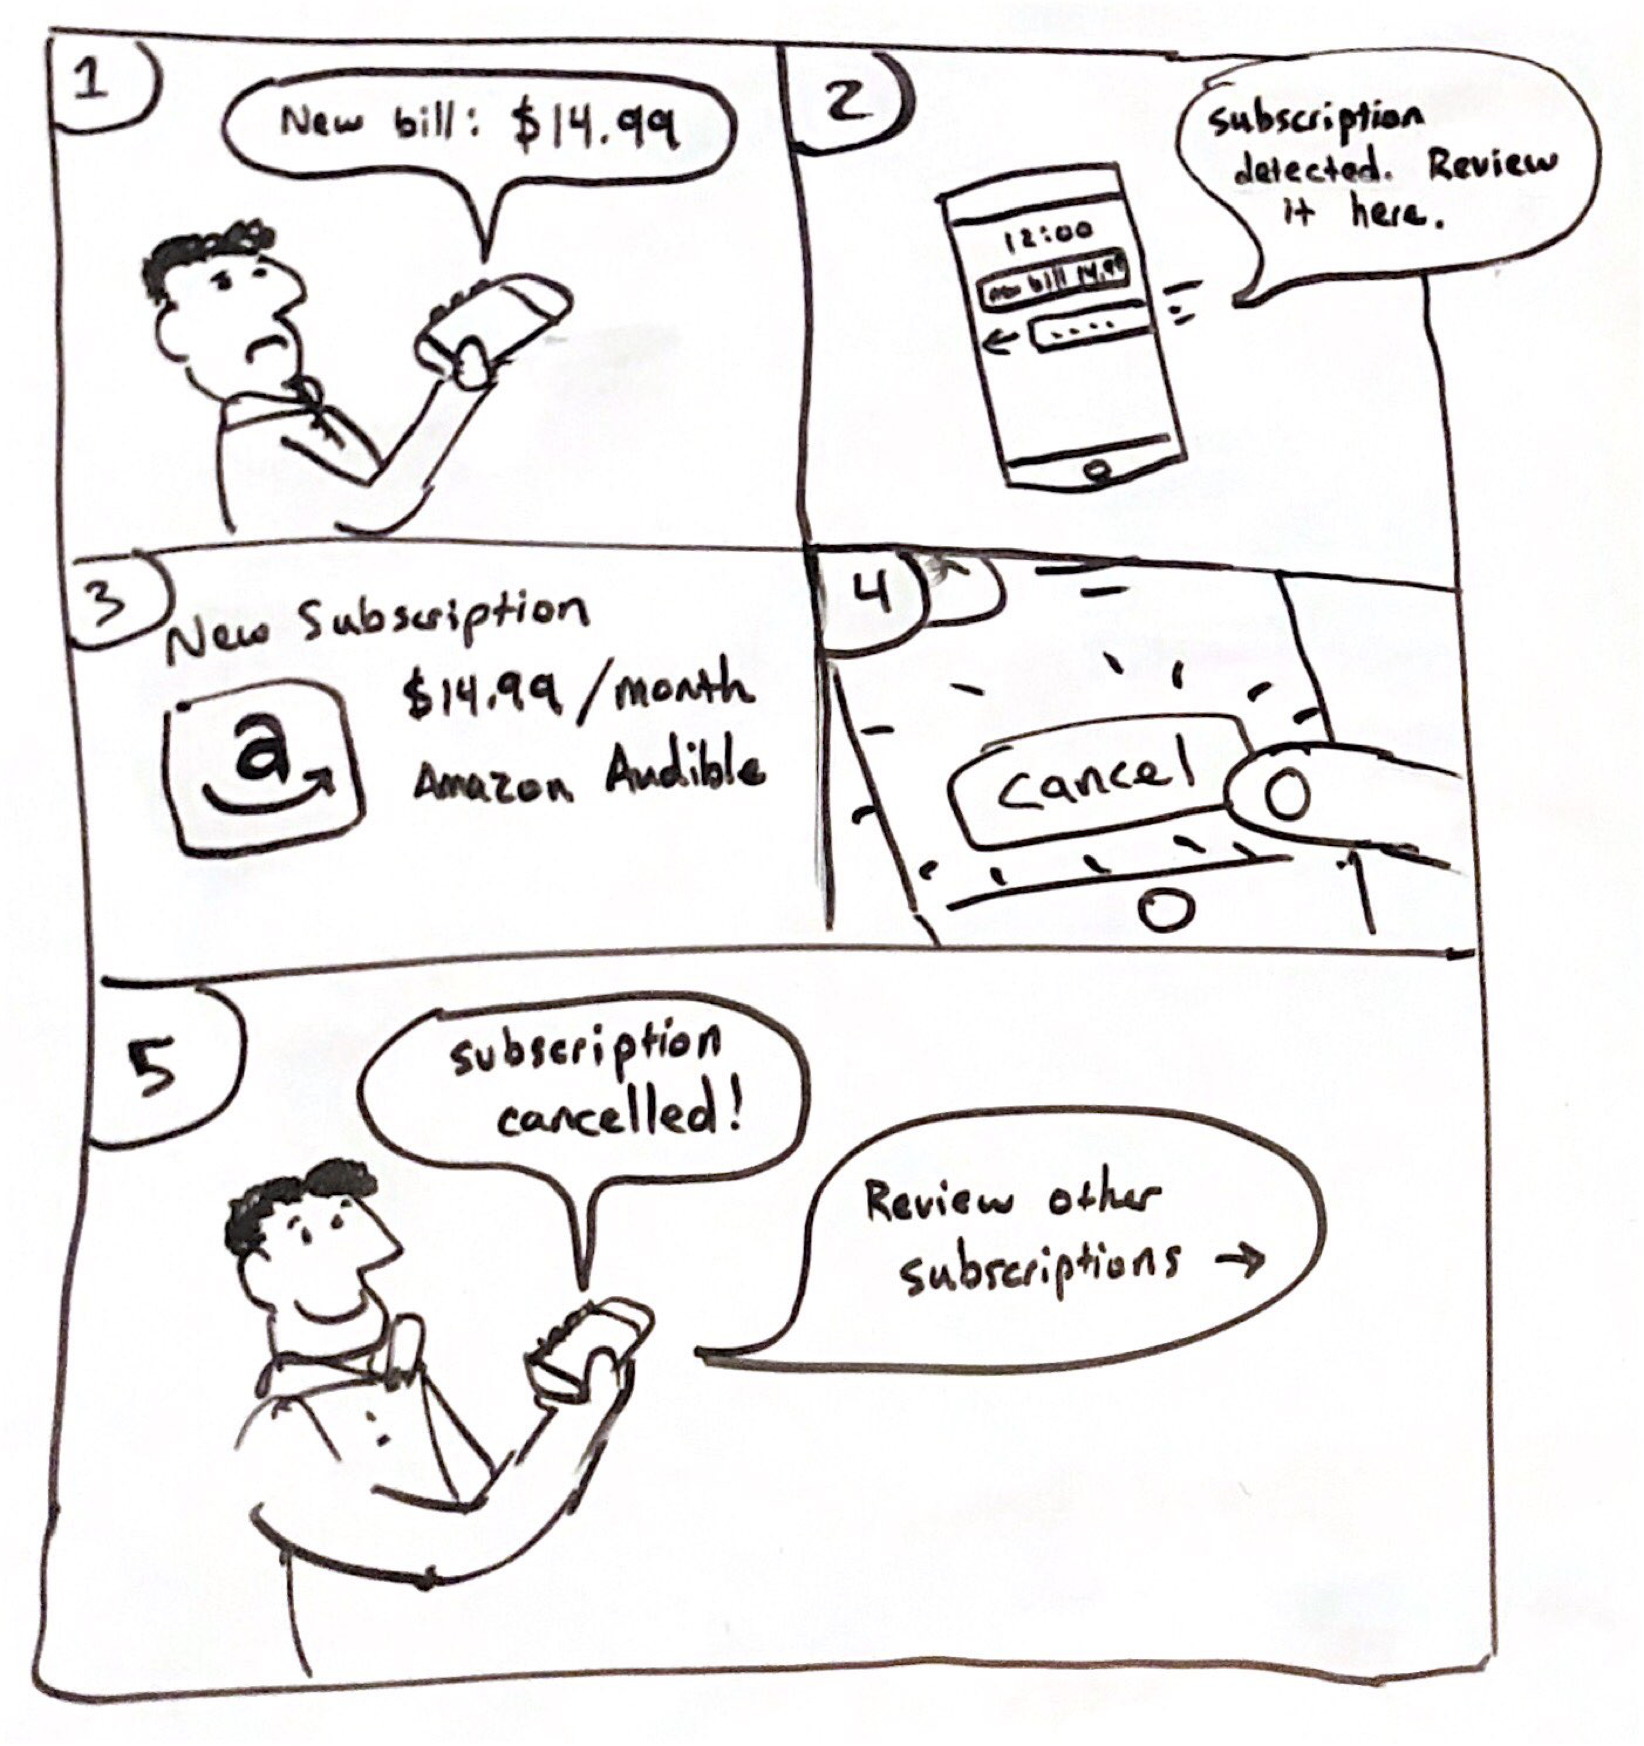 1
New bill: $14.99
2
subscription
detected. Review
it here.
12:00
new bill 14.99
....
3
New Subscription
$14.99/month
a
Amazon Audible
4
cancel
5
subscription
cancelled!
Review other
subscriptions →